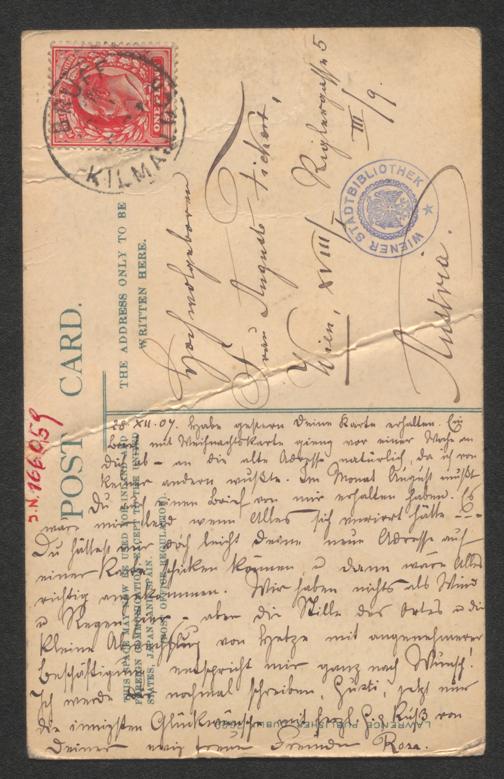 BRUFF
KILMALLOCK
ONE PENNY
POST CARD.
THE ADDRESS ONLY TO BE
WRITTEN HERE.
Hochwolgeboren
Frau Auguste Fickert,
Wien, XVIII/
III/9.
Austria.
WIENER STADTBIBLIOTHEK
J.N. 166.059
THIS SPACE MAY NOW BE USED FOR INLAND AND
FOREIGN COMMUNICATION EXCEPT TO THE UNITED
STATES, JAPAN AND SPAIN.
(POST OFFICE REGULATION).
LAWRENCE PUBLISHER DUBLIN
28 XII. 07. Habe gestern Deine Karte erhalten. Ein
Brief mit Weihnachtskarte gieng vor einer Woche an
Dich ab – an die alte Adresse natürlich, da ich von
keiner andern wußte. Im Monat August mußt
Du doch einen Brief von mir erhalten haben. Es
wenn Alles sich verirrt hätte –
Du hättest mir doch leicht Deine neue Adresse auf
einer Karte schicken können u dann wäre Alles
richtig angekommen. Wir haben nichts als Wind
u Regen hier – aber die Stille des Ortes u die
kleine von Hetze mit angenehmerer
Beschäftigung entspricht mir ganz nach Wunsch!
Ich werde nochmal schreiben, jetzt nur
die innigsten Glückwünsche mit herzl. Kuß von
Deiner ewig treuen Freundin Rosa.